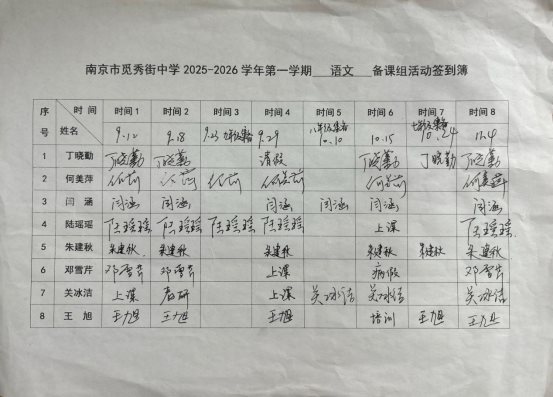 南京市觅秀街中学 2025-2026 学年第一学期 语文 备课组活动签到簿
序号 时间 姓名 时间 1 时间 2 时间 3 时间 4 时间 5 时间 6 时间 7 时间 8
9.12 9.18 9.23 9.29 10.10 10.15 10.24 11.4
1 丁晓勤 丁晓勤 丁晓勤 请假 丁晓勤 丁晓勤 丁晓勤
2 何美萍 何美萍
3 闫 涵 闫涵 闫涵 闫涵 闫涵 闫涵 闫涵
4 陆瑶瑶 陆瑶瑶 陆瑶瑶 陆瑶瑶 陆瑶瑶 上课 陆瑶瑶
5 朱建秋 朱建秋 朱建秋 朱建秋 朱建秋 朱建秋 朱建秋
6 邓雪芹 邓雪芹 邓雪芹 上课 病假 邓雪芹
7 关冰洁 上课 教研 上课 关冰洁 关冰洁 关冰洁
8 王 旭 王旭 王旭 王旭 培训 王旭 王旭